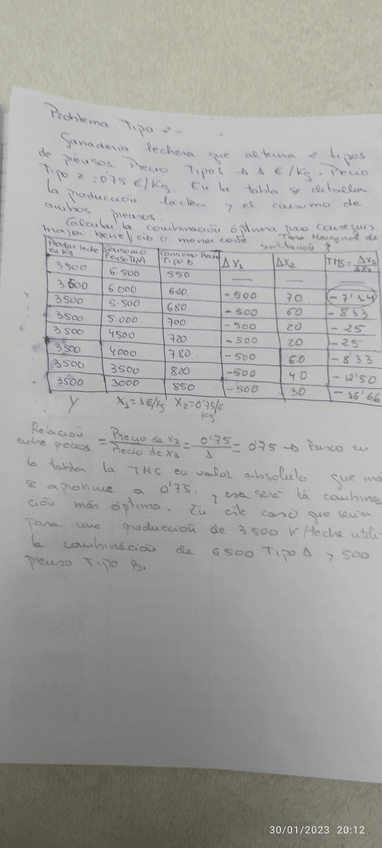 Problema Tipo 2.-
Ganadería lechera que alterna 2 tipos
de piensos. Precio Tipo 1 → 1 €/Kg. Precio
Tipo 2: 0'75 €/Kg. En la tabla se detallan
la producción láctea y el consumo de
ambos piensos.
Calcular la combinación óptima para conseguir
mayor beneficio o menor coste
Tasa Marginal de
sustitución
Produc leche en Kg Consumo Pienso Tipo A Consumo Pienso Tipo B ΔX1 ΔX2 TMS = ΔX1/ΔX2
3500 6.500 550 — — —
3500 6.000 620 -500 70 -7'14
3500 5.500 680 -500 60 -8'33
3500 5.000 700 -500 20 -25
3500 4500 720 -500 20 -25
3500 4000 780 -500 60 -8'33
3500 3500 820 -500 40 -12'50
3500 3000 850 -500 30 -16'66
Y X1 = 1€/Kg X2 = 0'75/€ Kg
Relación entre precios = Precio de X2 / Precio de X1 = 0'75 / 1 = 0'75 → Busco en
la tabla la TMS en valor absoluto que más
se aproxime a 0'75. y esa será la combina-
ción más óptimo. En este caso que sería
para una producción de 3500 leche
la combinación de 6500 Tipo A y 500
pienso Tipo B.
30/01/2023 20:12